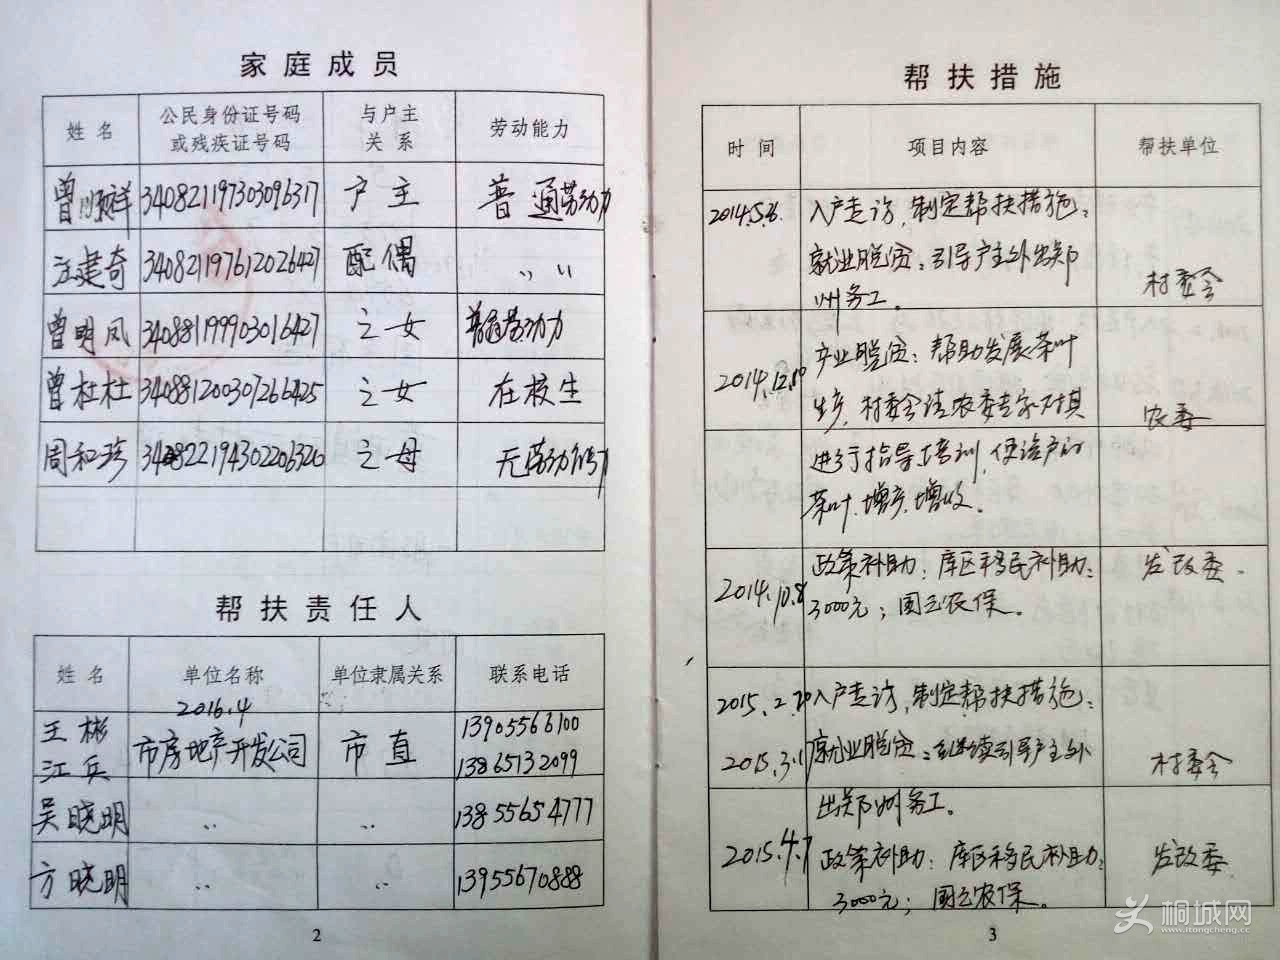 家庭成员
姓名 公民身份证号码或残疾证号码 与户主关系 劳动能力
曾顺祥 340821197303096317 户主 普通劳动力
汪建奇 340821197612026427 配偶 〃
曾明凤 340881199903016427 之女 普通劳动力
曾杜杜 340881200307266425 之女 在校生
周和珍 之母 无劳动能力
帮扶责任人
姓名 单位名称 单位隶属关系 联系电话
2016.4
王彬 13905566100
市房地产开发公司 市直
江兵 13865132099
吴晓明 〃 〃 13855654777
方晓明 〃 〃 13955670888
2
帮扶措施
时间 项目内容 帮扶单位
2014.5.6 入户走访,制定帮扶措施:
就业脱贫:引导户主外出郑
州务工。 村委会
2014.12.10 产业脱贫:帮助发展茶叶
生产,村委会请农委专家对其 农委
进行指导培训,使该户的
茶叶增产增收。
政策补助:库区移民补助: 发改委
2014.10.8 3000元;国元农保。
2015.2.20 入户走访,制定帮扶措施:
2015.3.17 就业脱贫:继续引导户主外 村委会
出郑州务工。
2015.4.7 政策补助:库区移民补助: 发改委
3000元;国元农保。
3
桐城网
www.itongcheng.cc